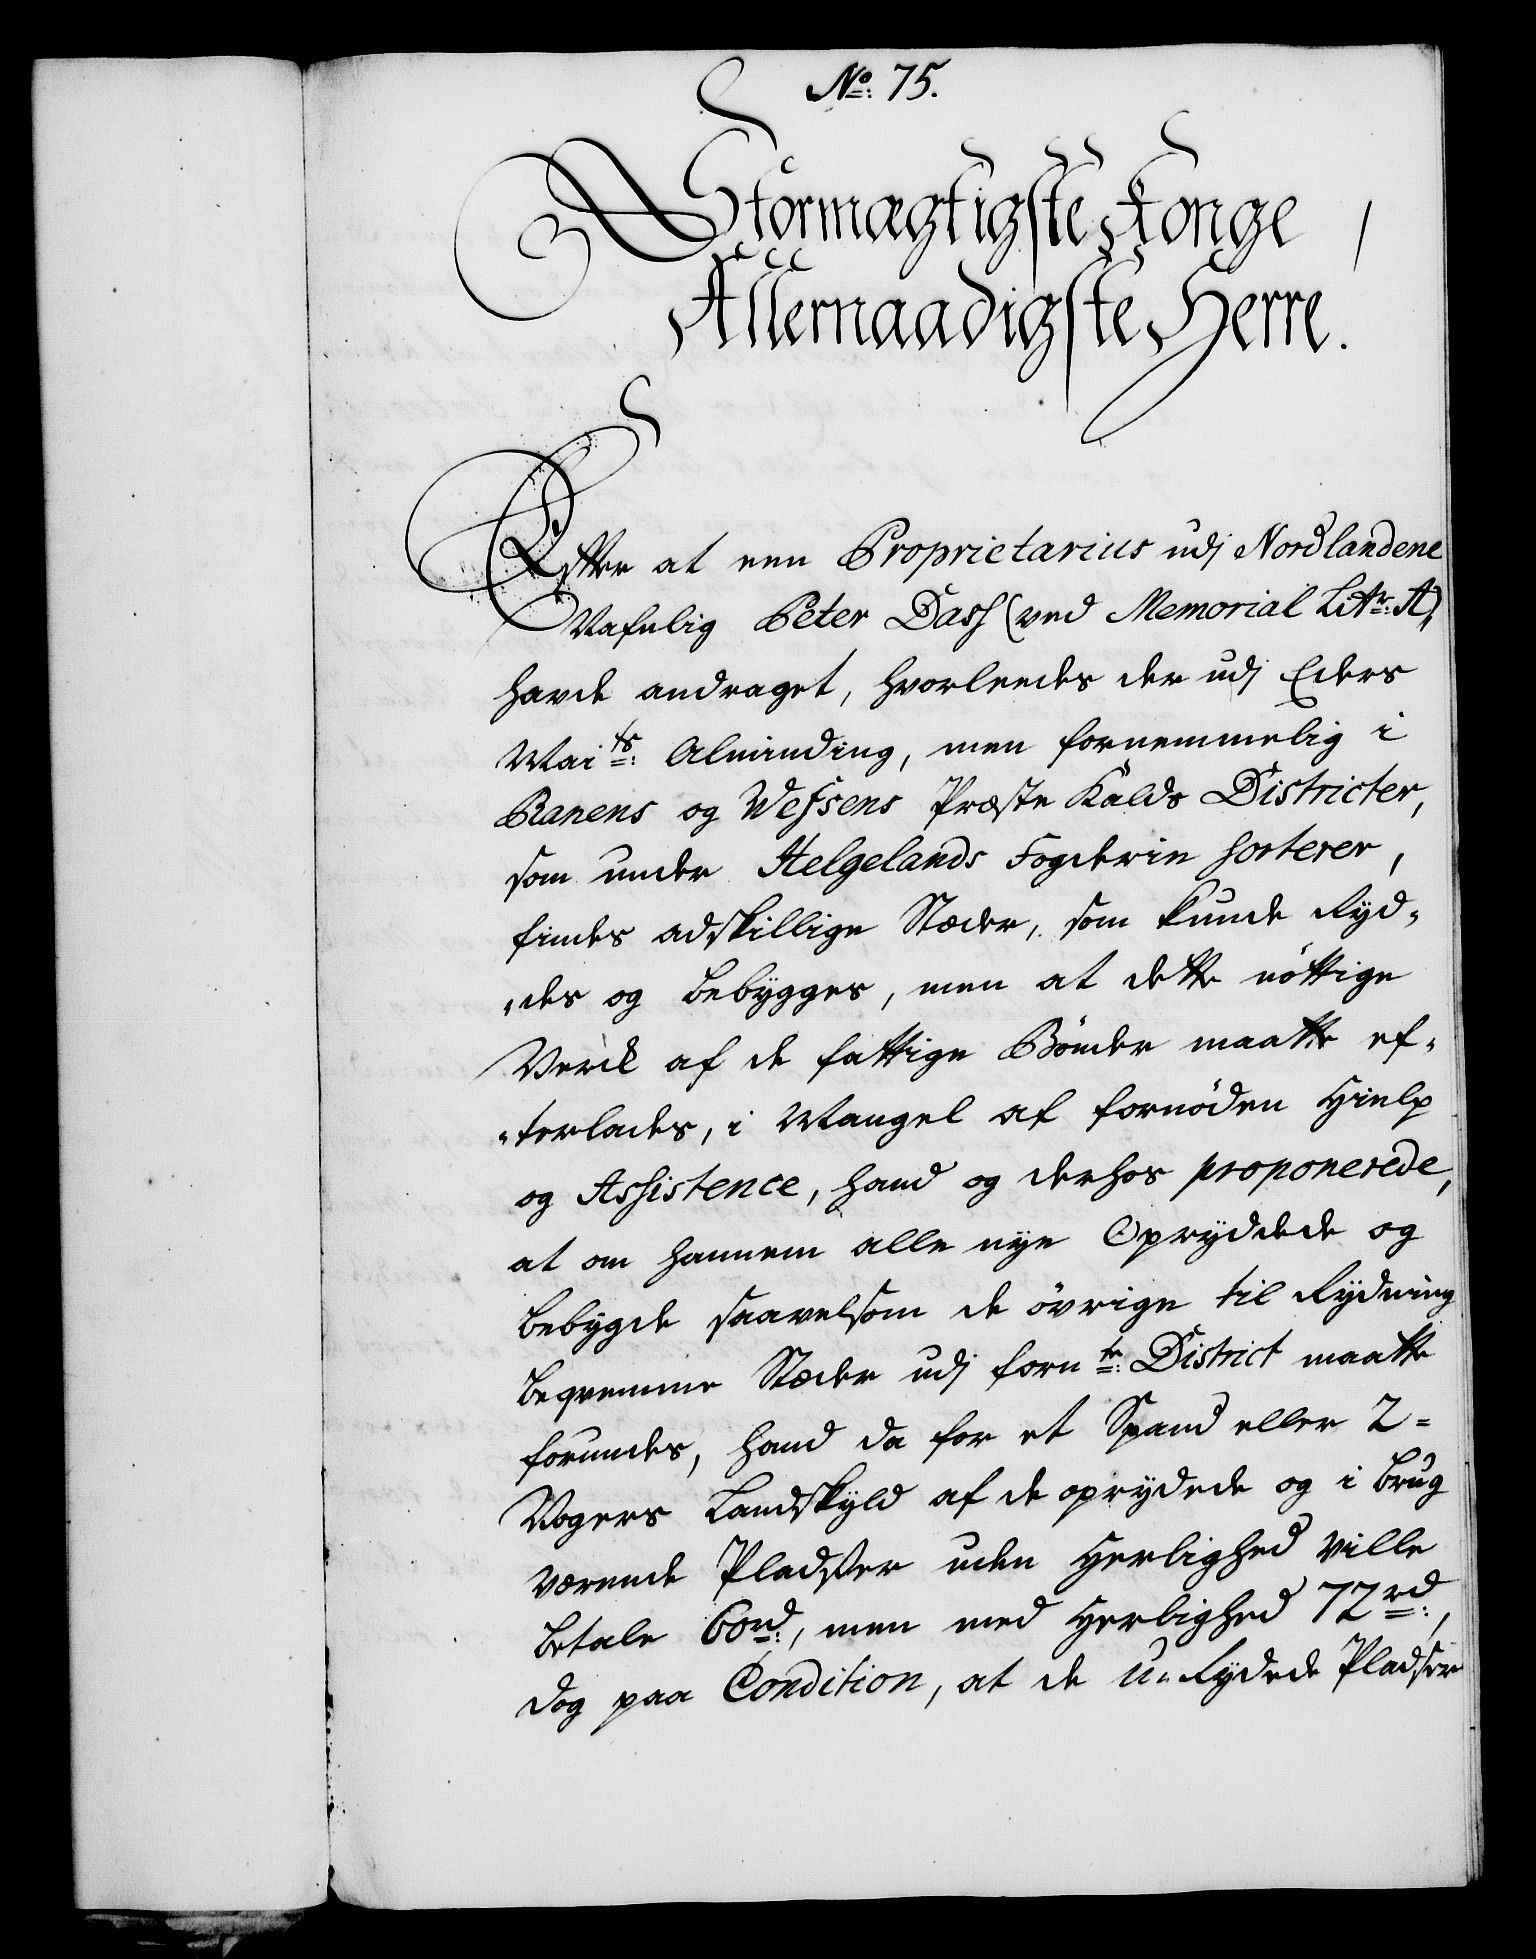 No: 75.
Stormægtigste Konge
Allernaadigste Herre.
Efter at een Proprietarius udj Nordlandene
Nafnlig Peter Dass (ved Memorial Litr: A)
havde andraget, hvorleedes der udj Eders
Maits: Alminding, men fornemmelig i
Ranens og Wefsens Præste Kalds Districter,
som under Helgelands Fogderie sorterer,
findes adskillige Stæder, som kunde Ryd-
-des og bebygges, men at dette nöttige
Verck af de fattige Bönder maatte ef-
-terlades, i Mangel af fornöden Hielp
og Assistence, hand og derhos proponerede,
at om hannem alle nye Opryddede og
bebygde saavelsom de övrige til Rydning
beqvemme Stæder udj forn te: District maatte
forundes, hand da for et Spand eller 2-
Vogers Landskyld af de oprydede og i brug
værende Pladser uden Herlighed ville
betale 60 rd:, men med Herlighed 72 rd:,
dog paa Condition, at de U-Rydede Pladser